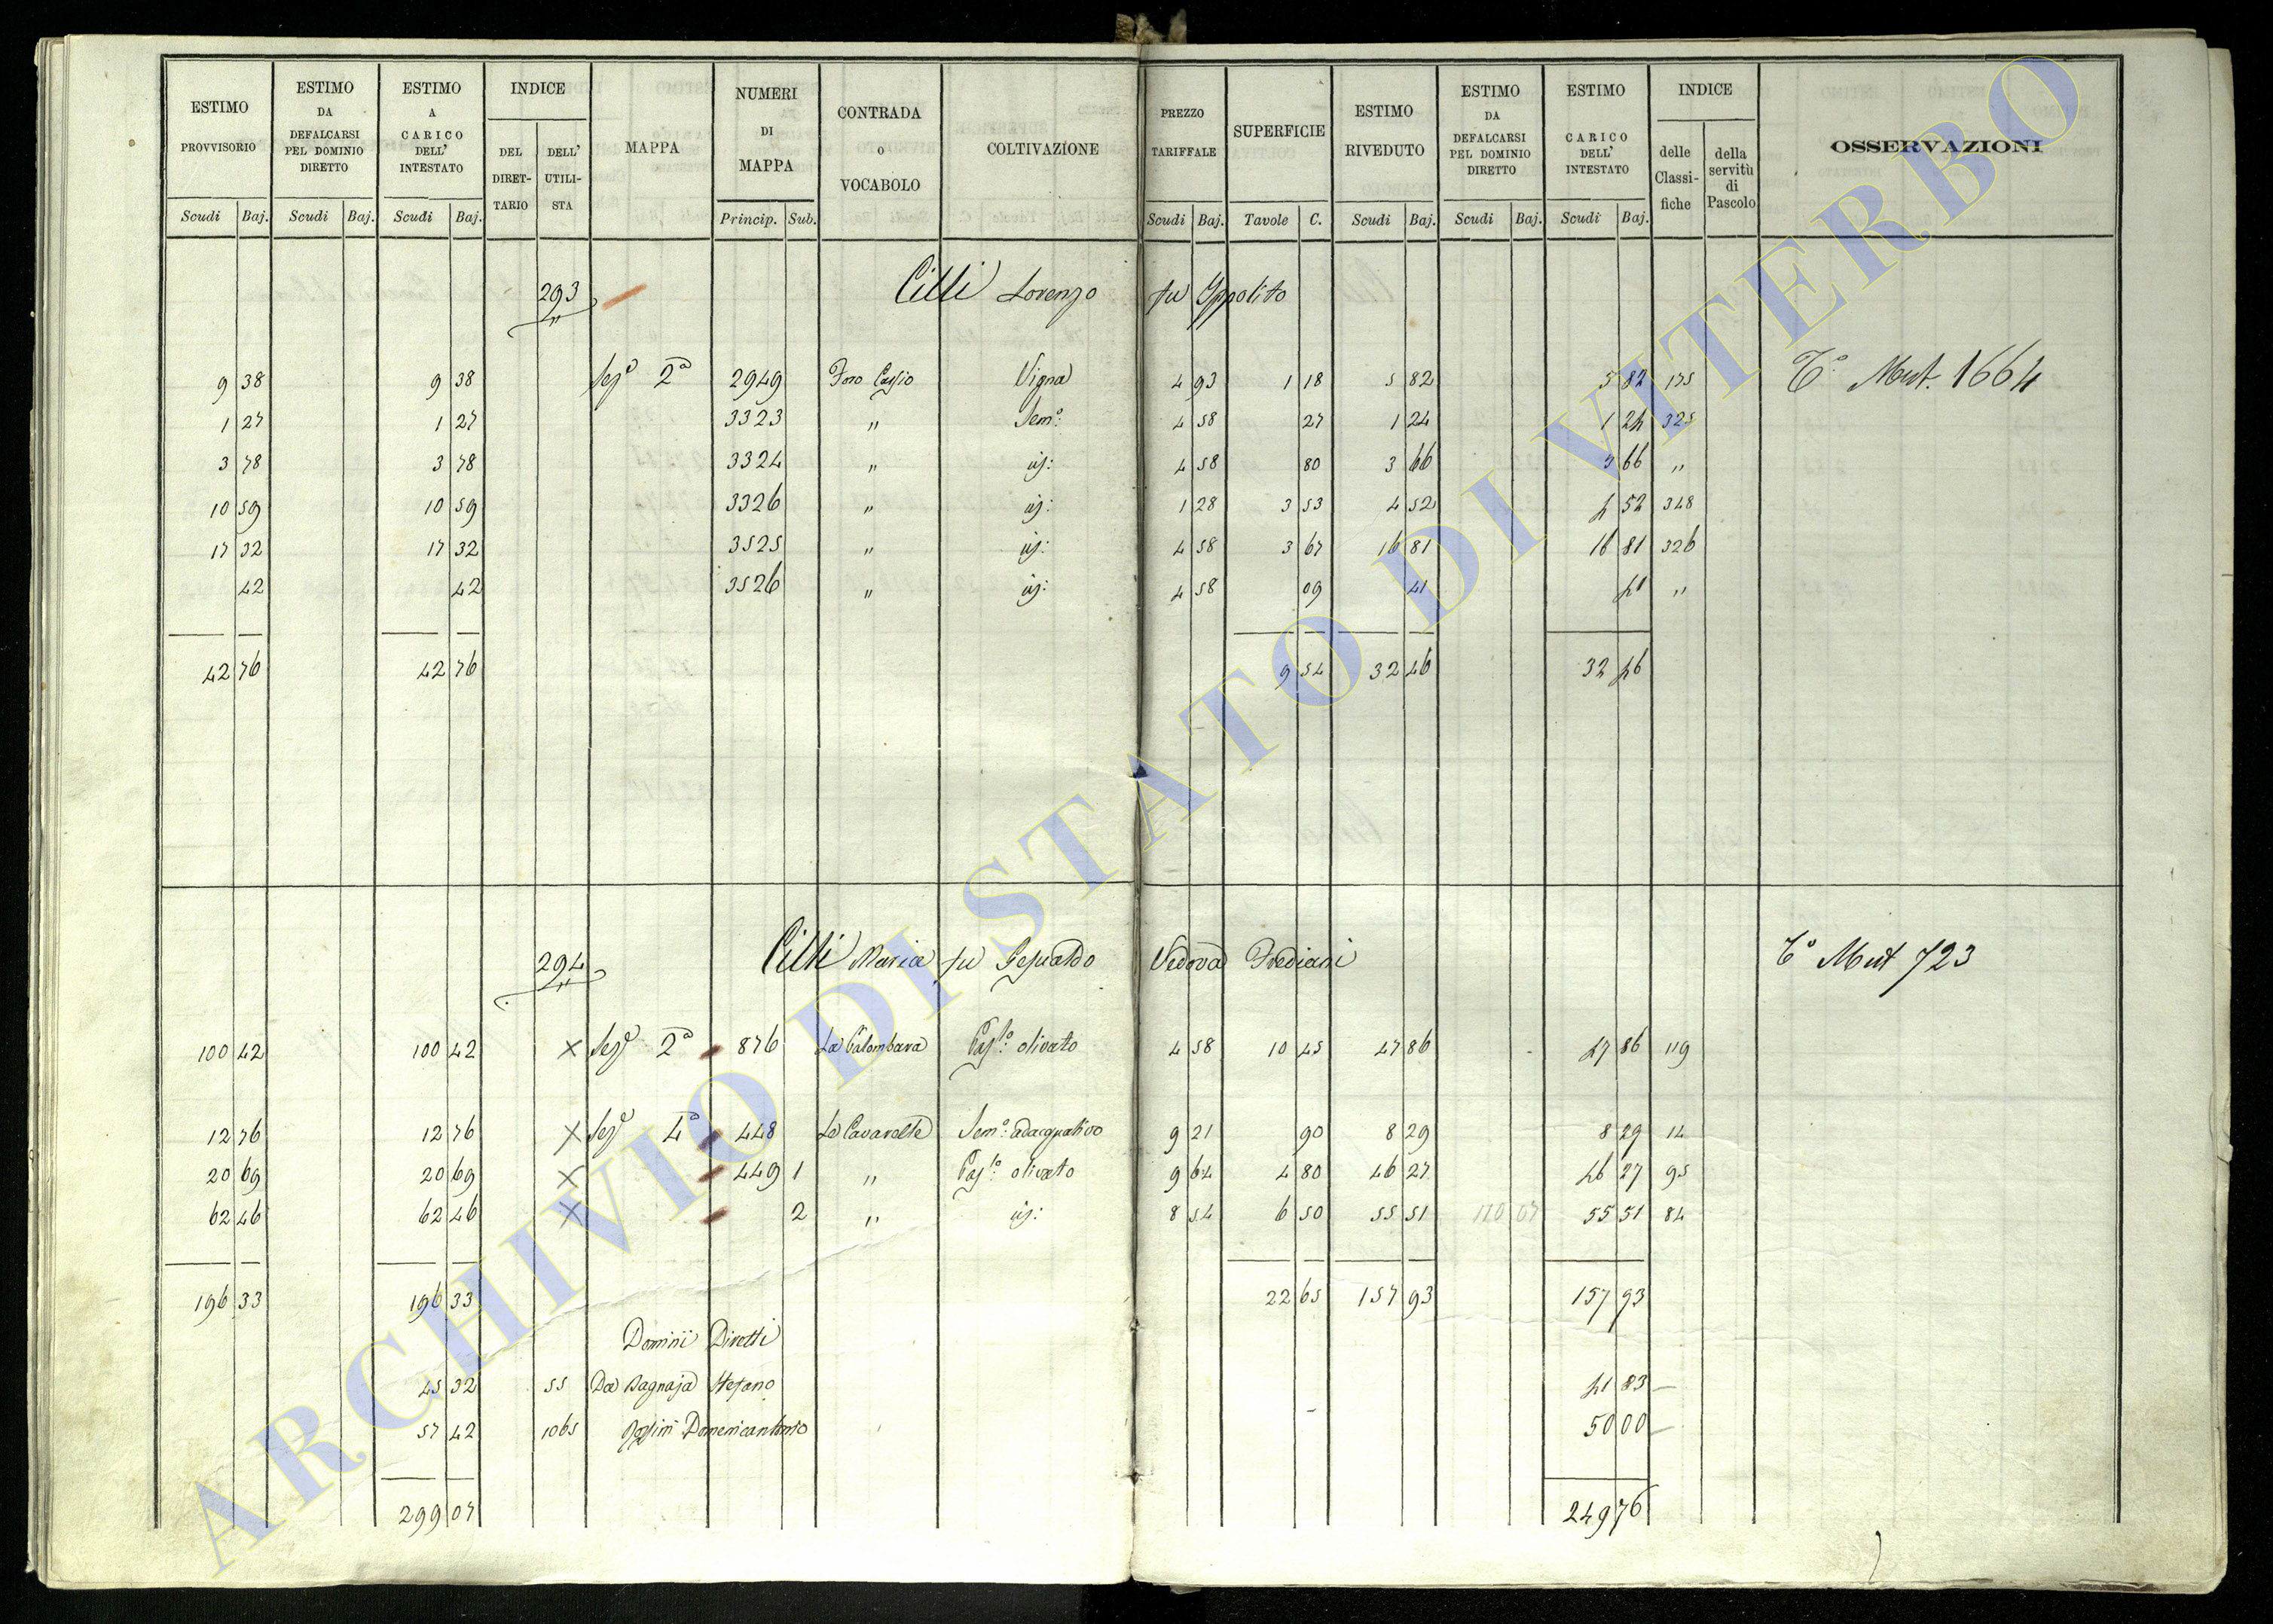 ESTIMO PROVVISORIO | ESTIMO DA DEFALCARSI PEL DOMINIO DIRETTO | ESTIMO A CARICO DELL' INTESTATO | INDICE | MAPPA | NUMERI DI MAPPA | CONTRADA O VOCABOLO | COLTIVAZIONE | PREZZO TARIFFALE | SUPERFICIE | ESTIMO RIVEDUTO | ESTIMO DA DEFALCARSI PEL DOMINIO DIRETTO | ESTIMO CARICO DELL' INTESTATO | INDICE | OSSERVAZIONI
DEL DIRET-TARIO | DELL' UTILI-STA | delle Classi-fiche | della servitù di Pascolo
Scudi | Baj. | Scudi | Baj. | Scudi | Baj. | Princip. | Sub. | Scudi | Baj. | Tavole | C. | Scudi | Baj. | Scudi | Baj. | Scudi | Baj.
293 Cilli Lorenzo fu Ippolito
9 38 | 9 38 | Sezᵉ 2ᵃ | 2949 | Foro Cassio | Vigna | 4 93 | 1 18 | 5 82 | 5 82 | 175 | Tº Mut. 1664
1 27 | 1 27 | 3323 | " | Semº: | 4 58 | 27 | 1 24 | 1 24 | 325
3 78 | 3 78 | 3324 | " | id: | 4 58 | 80 | 3 66 | 3 66 | "
10 59 | 10 59 | 3326 | " | id: | 1 28 | 3 53 | 4 52 | 4 52 | 348
17 32 | 17 32 | 3525 | " | id: | 4 58 | 3 67 | 16 81 | 16 81 | 326
42 | 42 | 3526 | " | id: | 4 58 | 09 | 41 | 41 | "
42 76 | 42 76 | 9 54 | 32 46 | 32 46
294 Cilli Maria fu Gesualdo Vedova Frediani | Tº Mut 723
100 42 | 100 42 | × | Sezᵉ 2ᵃ | 876 | La Palombara | Pasº: olivato | 4 58 | 10 45 | 47 86 | 47 86 | 119
12 76 | 12 76 | × | Sezᵉ 4ᵃ | 448 | Le Cavarelle | Semº: adacquativo | 9 21 | 90 | 8 29 | 8 29 | 14
20 69 | 20 69 | × | 449 | 1 | " | Pasº: olivato | 9 64 | 4 80 | 46 27 | 46 27 | 95
62 46 | 62 46 | × | 2 | " | id: | 8 54 | 6 50 | 55 51 | 170 07 | 55 51 | 84
196 33 | 196 33 | 22 65 | 157 93 | 157 93
Dominii Diretti
45 32 | 55 | Da Bagnaja Stefano | 41 83
57 42 | 1065 | Rossini Domenicantonio | 50 00
299 07 | 249 76
ARCHIVIO DI STATO DI VITERBO